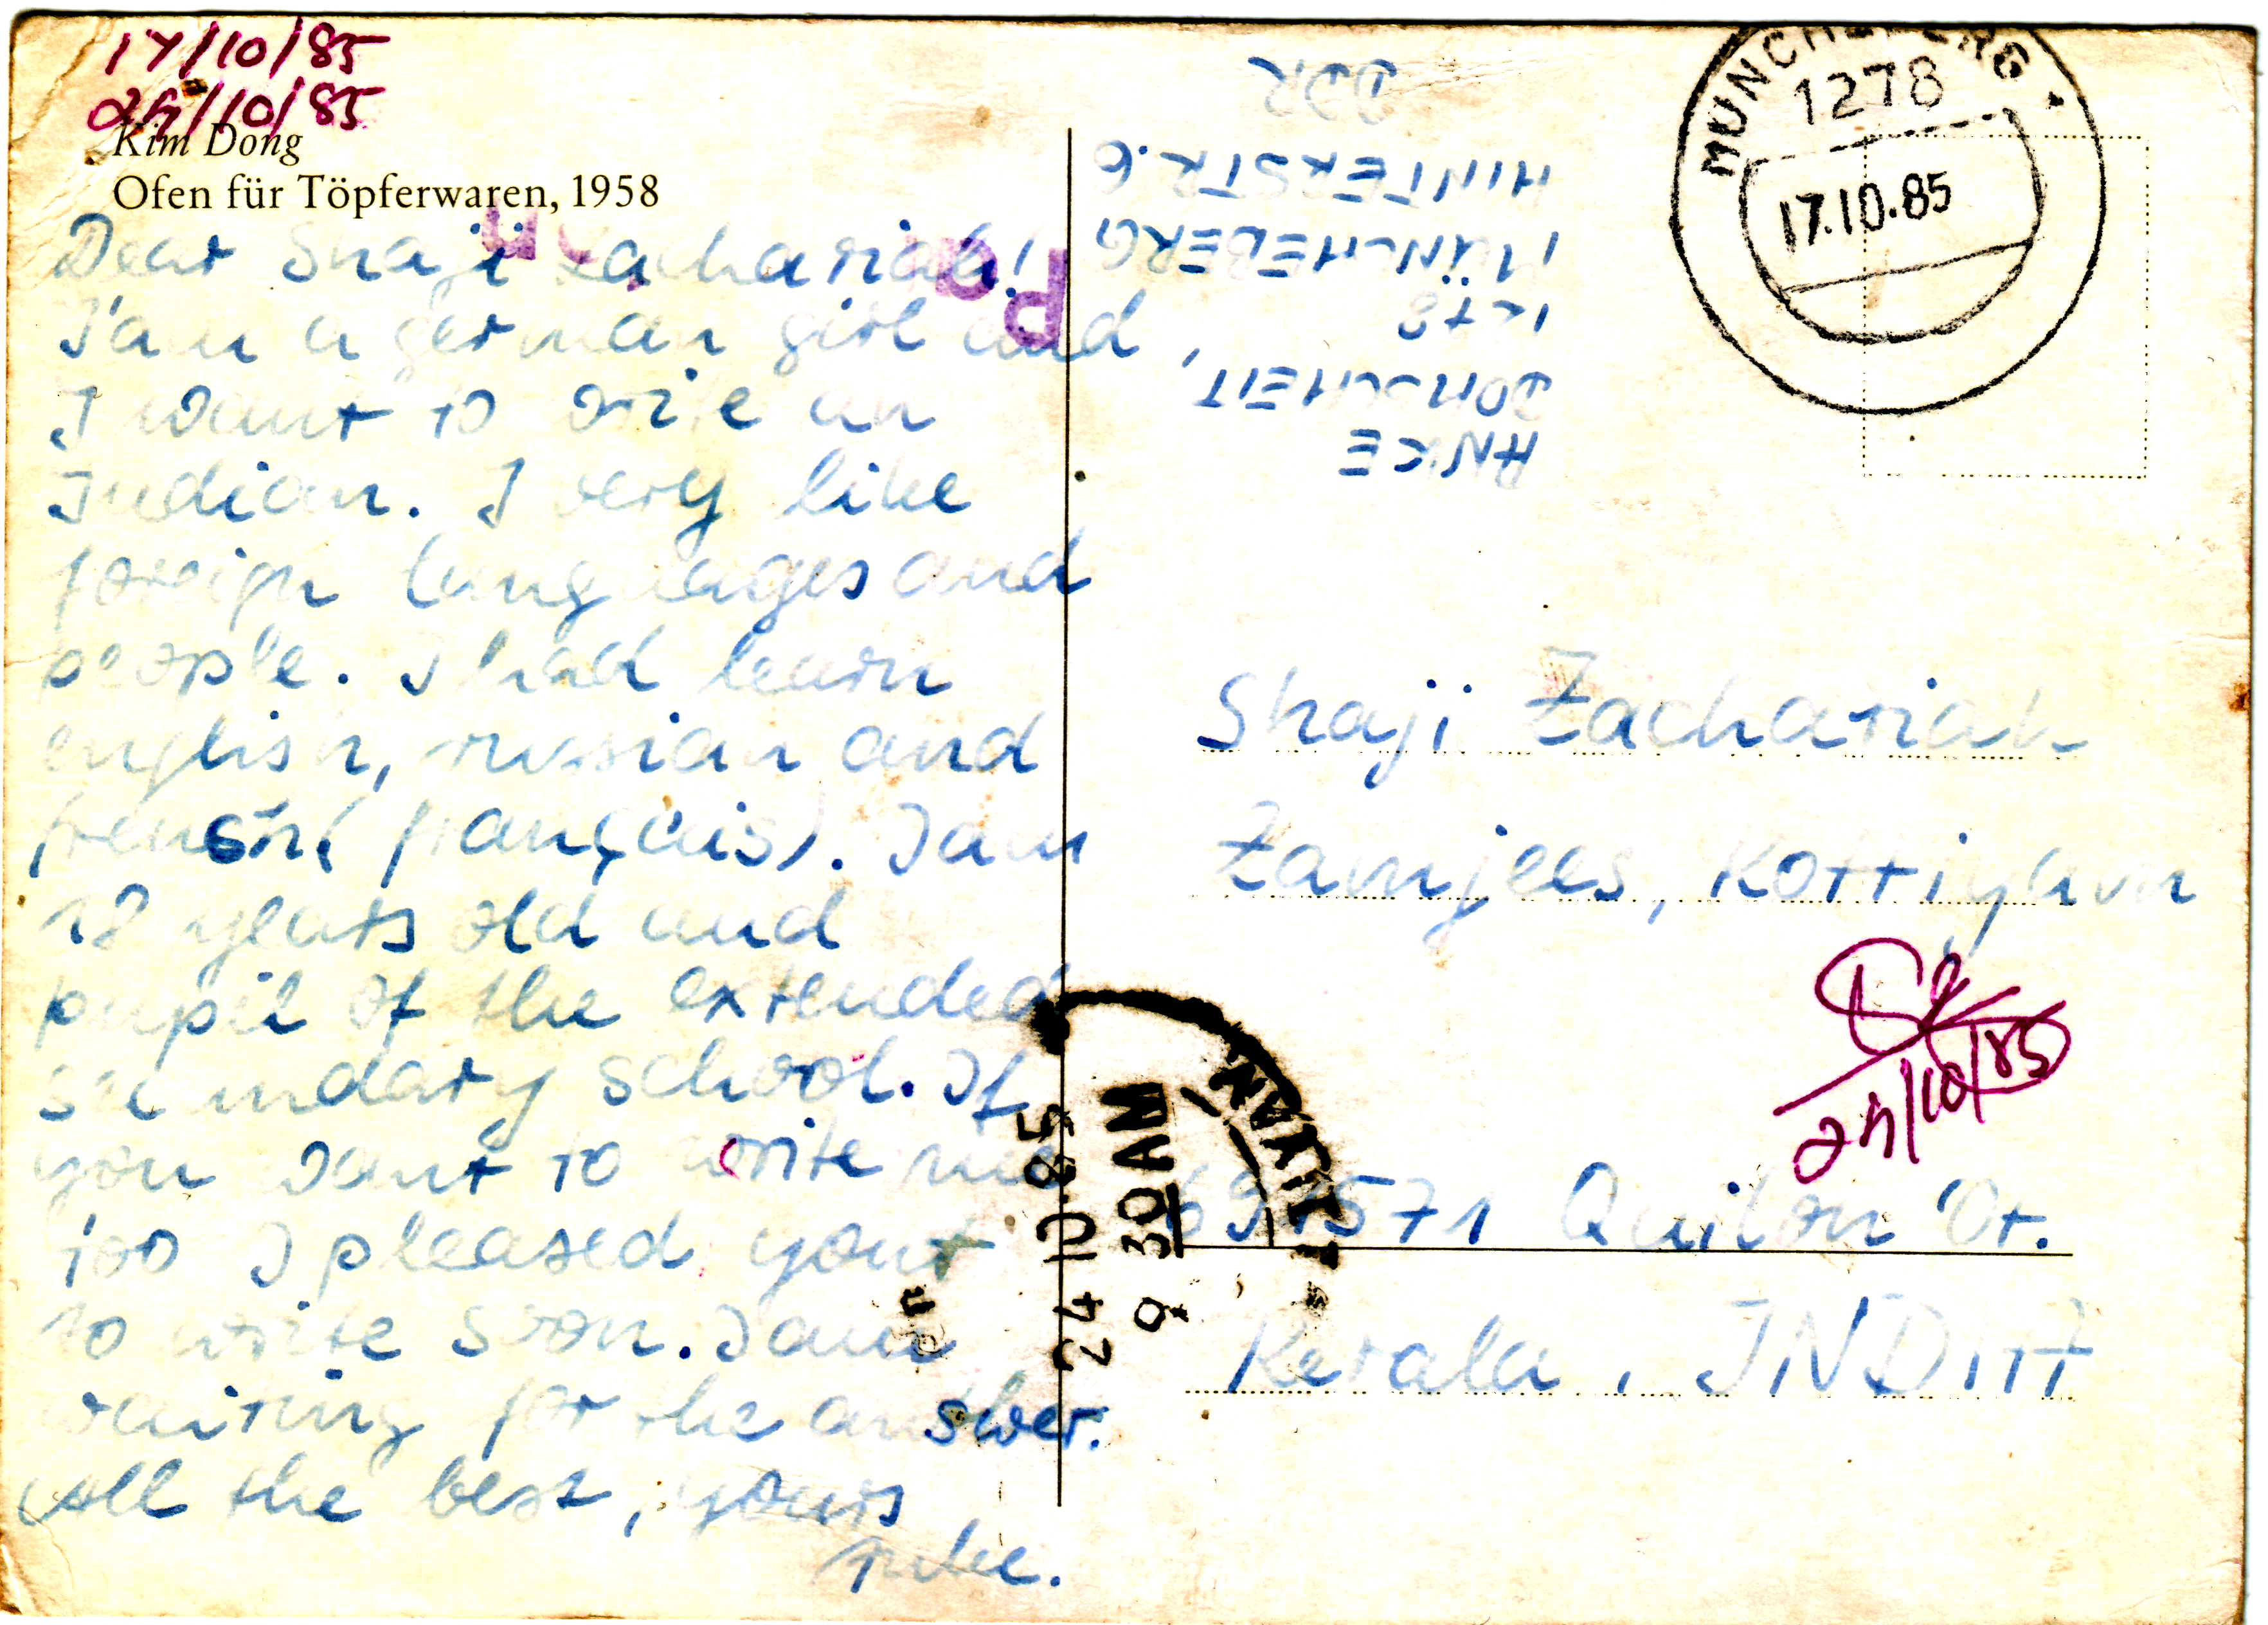 17/10/85
24/10/85
Kim Dong
Ofen für Töpferwaren, 1958
Dear Shaji Zachariah!
I'am a german girl and
I want to write an
Indian. I very like
foreign languages and
people. I had learn
english, russian and
french (français). I am
18 years old and
pupil of the extended
secondary school. If
you want to write me
too I pleased your
to write soon. I am
waiting for the answer.
All the best, yours
Anke.
ANKE
DOMSCHEIT,
1278
MÜNCHEBERG
HINTERSTR. 6
DDR
MÜNCHEBERG
1278
17.10.85
Shaji Zachariah
Zamjees, Kottiyam
691571 Quilon Dt.
Kerala, INDIA
24/10/85
KOTTIYAM
24 10 85
9 30 AM